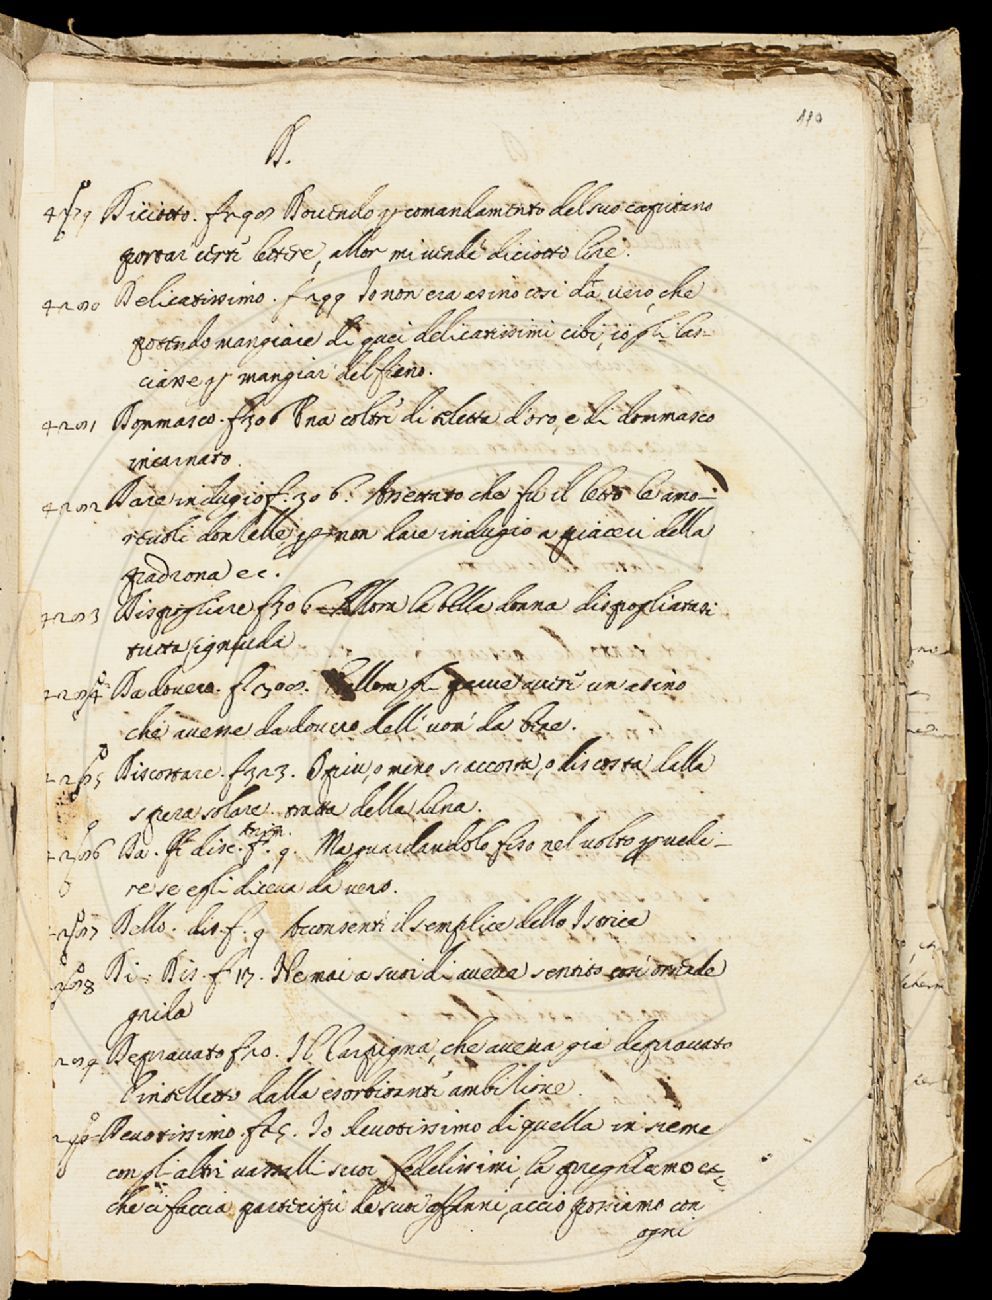 110
D.
4279 Diciotto. f. 298 Dovendo p comandamento del suo capitano
portar certe lettere, allor mi vendè diciotto lire.
4280 Delicatissimo. f. 299 Io non era asino così da vero, che
potendo mangiare di quei delicatissimi cibi, io gli las-
ciasse p mangiar del fieno.
4281 Dommasco. f. 306 Una coltre di teletta d'oro, e di dommasco
incarnato.
4282 Dare indugio f. 306. Assettato che fu il letto le amo-
revoli donzelle, p non dare indugio a piaceri della
padrona ec.
4283 Dispogliare f. 306 Allora la bella donna dispogliatasi
tutta ignuda
4284 Da dovero. f. 308. Allora gli parve avere un asino
che avesse da dovero dell'uom da bene.
4285 Discostare. f. 323. O più, o meno s'accosta, o discosta dalla
spera solare. tratta della luna.
4286 Da. f. 9. Ma guardandolo fiso nel volto p vede-
re se egli diceva da vero.
4287 Dello. dis. f. 9 Acconsentì il semplice dello Isorica
4288 Di. Dis. f. 17. Ne mai a suoi dì aveva sentito così orrende
grida
4289 Depravato f. 20. Il Carpigna, che aveva già depravato
l'intelletto dalla esorbitante ambizione.
4290 Devotissimo. f. 25. Io devotissimo di quella insieme
con gli altri vassalli suoi fedelissimi, la preghiamo ec.
che ci faccia partecipi de suoi affanni, acciò possiamo con
ogni